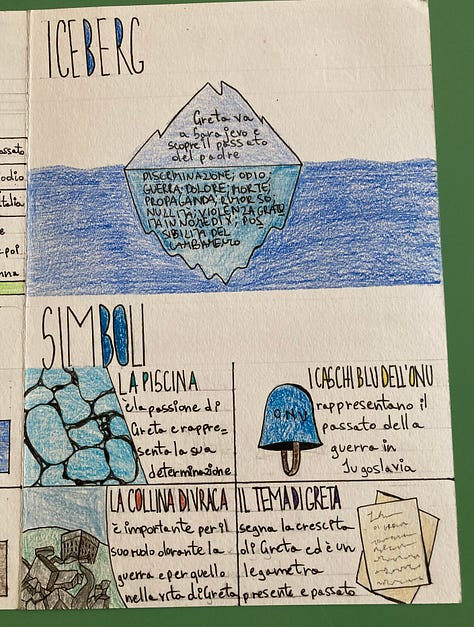 ICEBERG
Greta va
a Sarajevo e
scopre il passato
del padre
DISCRIMINAZIONE; ODIO;
GUERRA; DOLORE; MORTE;
PROPAGANDA; RIMORSO;
NULLITÀ; VIOLENZA GRATU
ITA IN NOME DI X; POS
SIBILITÀ DEL
CAMBIAMENTO
SIMBOLI
LA PISCINA
è la passione di
Greta e rappre=
senta la sua
determinazione
I CASCHI BLU DELL'ONU
O.N.U
rappresentano il
passato della
guerra in
Jugoslavia
LA COLLINA DI VRACA
è importante per il
suo ruolo durante la
guerra e per quello
nella vita di Greta
IL TEMA DI GRETA
segna la crescita
di Greta ed è un
legame tra
presente e passato
assato
odio
italia
e
poi
nna